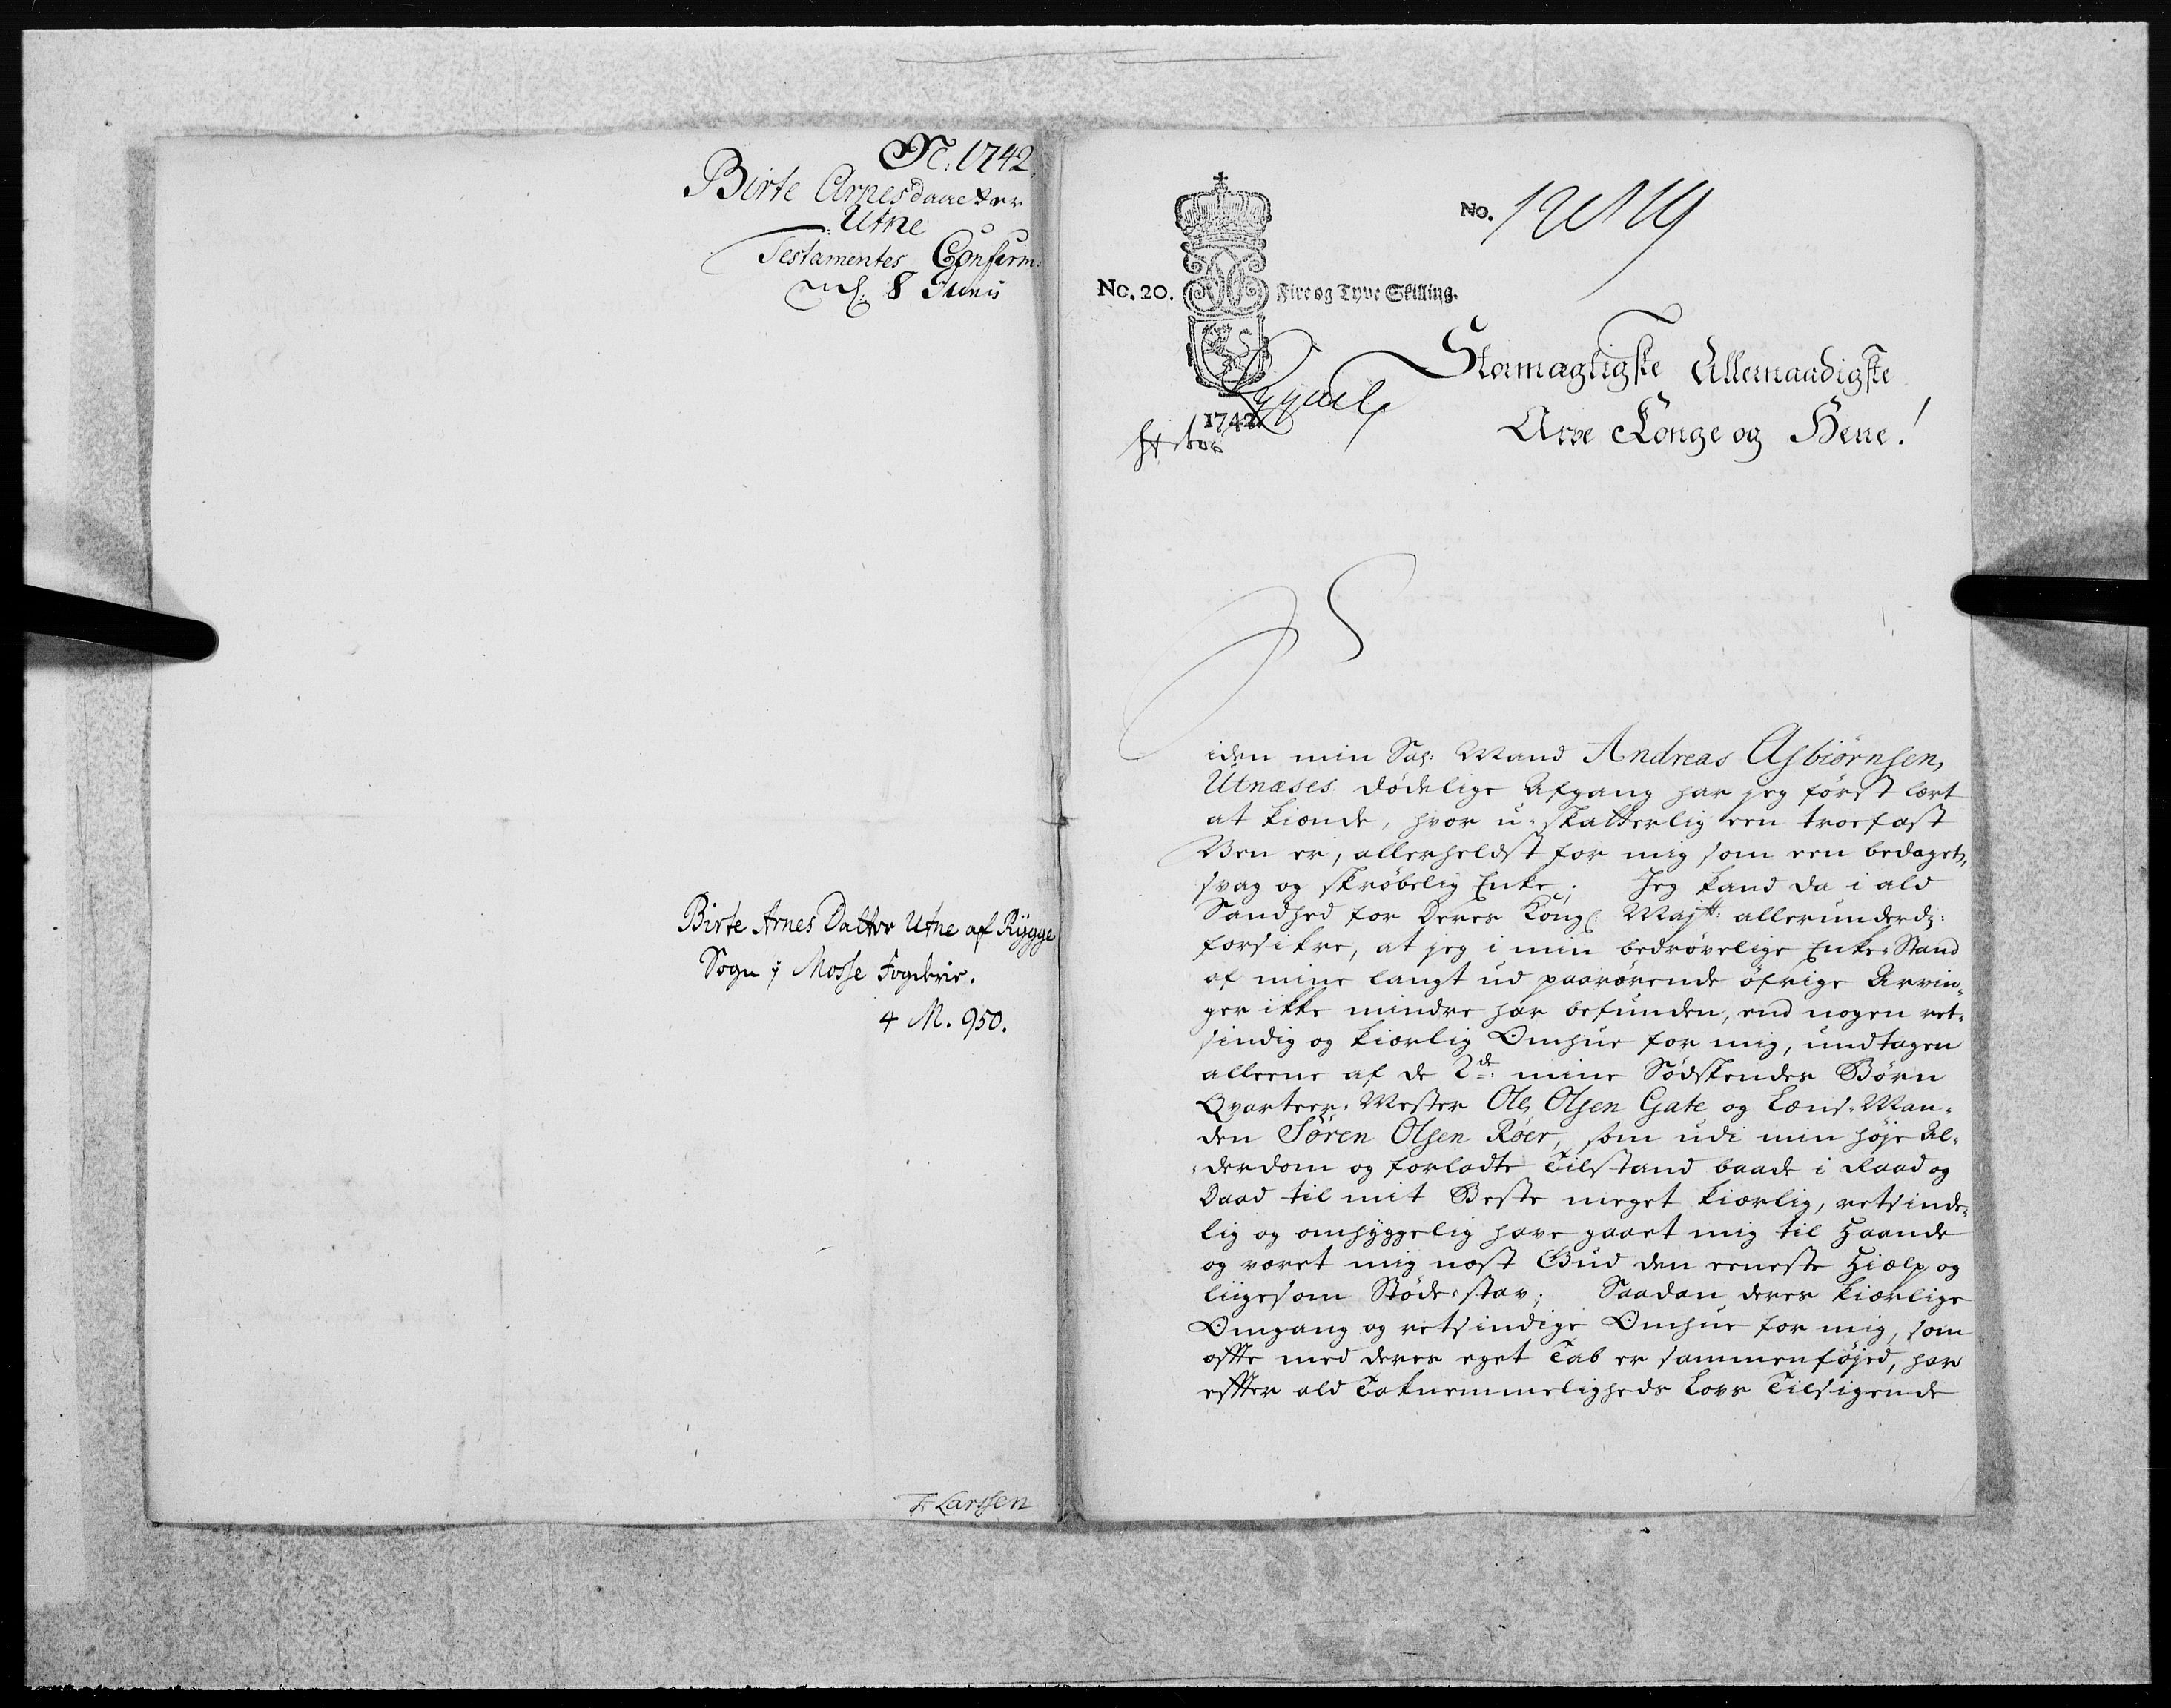 1742.
Birte Arnesdaatter
Utne
Testamentes Confirm:
8 Junii
Birte Arnes Datter Utne af Rygge
Sogn i Mosse Fogderie.
4 M. 950.
Larssen
No.
No. 20. Fire og Tyve Skilling.
1742
Stormægtigste Allernaadigste
Arve Konge og Herre!
S
iden min Sal: Mand Andreas Asbiørnsen
Utnæses dødelige Afgang har jeg først lært
at kiende, hvor u-skatterlig een troefast
Ven er, allerheldst for mig som een bedaget,
svag og skrøbelig Enke; Jeg kand da i ald
Sandhed for Deres Kongl: Majtt: allerunderd:
forsikre, at jeg i min bedrøvelige Enke-Stand
af mine langt ud paarørende øfrige Arvin-
ger ikke mindre har befunden, end nogen ret-
sindig og kierlig Omhue for mig, undtagen
alleene af de 2de: mine Sødskendes Børn
Qvarteer-Mester Ole Olsen Gate og Læns-Man-
den Søren Olsen Røer, som udi min høje Al-
derdom og forladte Tilstand baade i Raad og
Daad til mit Beste meget kierlig, retsinde-
lig og omhyggelig have gaaet mig til Haande
og været mig næst Gud den eeneste Hielp og
liigesom Støde-stav; Saadan deres kierlige
Omgang og retsindige Omhue for mig, som
offte med deres eget Tab er sammenføjed, har
effter ald Taknemmeligheds Lovs Tilsigende